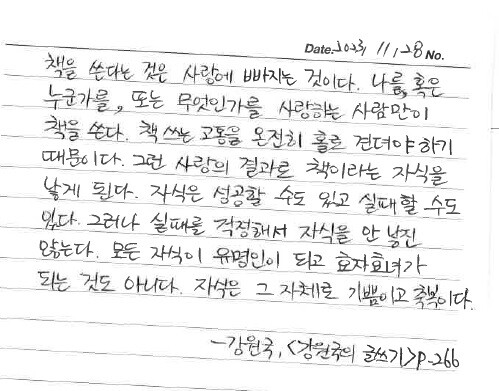 Date. 2023, 11, 28 No.
책을 쓴다는 것은 사랑에 빠지는 것이다. 나를, 혹은
누군가를, 또는 무엇인가를 사랑하는 사람만이
책을 쓴다. 책 쓰는 고통을 온전히 홀로 견뎌야 하기
때문이다. 그런 사랑의 결과로 책이라는 자식을
낳게 된다. 자식은 성공할 수도 있고 실패할 수도
있다. 그러나 실패를 걱정해서 자식을 안 낳진
않는다. 모든 자식이 유명인이 되고 효자효녀가
되는 것도 아니다. 자식은 그 자체로 기쁨이고 축복이다.
-강원국, <강원국의 글쓰기> p.266